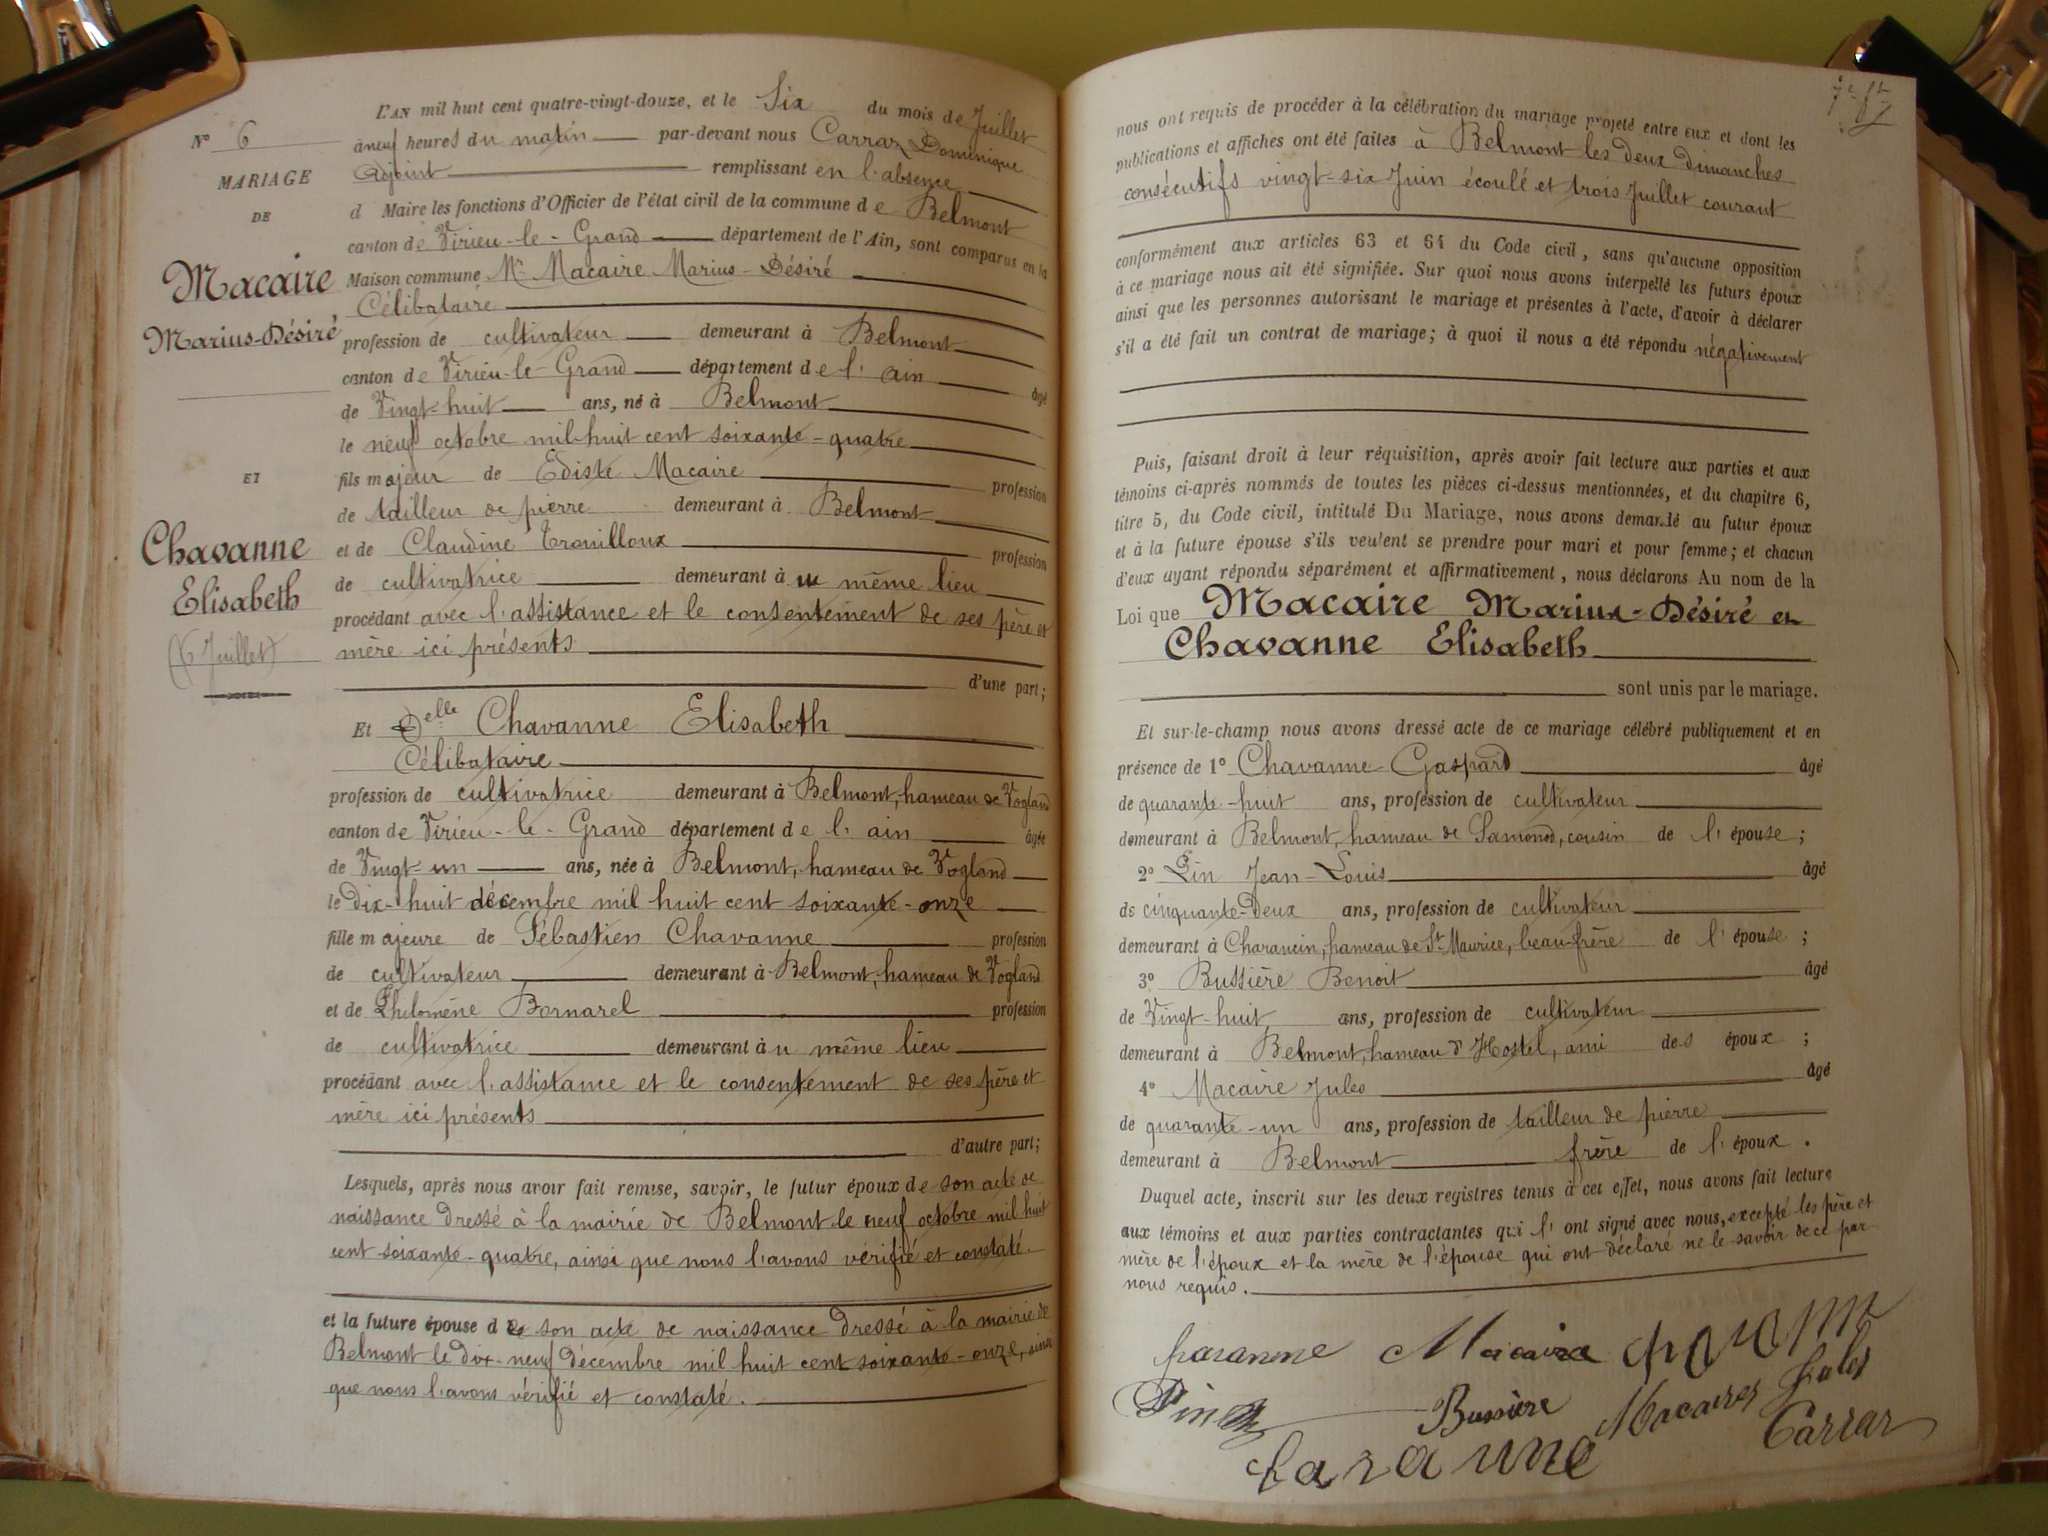 N° 6
MARIAGE
DE
Macaire
Marius-Désiré
ET
Chavanne
Elisabeth
(6 Juillet)
L'AN mil huit cent quatre-vingt-douze, et le Six du mois de Juillet
à neuf heures du matin par-devant nous Carraz Dominique
Adjoint remplissant en l'absence
d Maire les fonctions d'Officier de l'état civil de la commune de Belmont
canton de Virieu-le-Grand département de l'Ain, sont comparus en la
Maison commune Mr Macaire Marius-Désiré
Célibataire
profession de cultivateur demeurant à Belmont
canton de Virieu-le-Grand département de l'ain âgé
de Vingt-huit ans, né à Belmont
le neuf octobre mil huit cent soixante-quatre
fils majeur de Ediste Macaire profession
de tailleur de pierre demeurant à Belmont
et de Claudine Trouilloux profession
de cultivatrice demeurant au même lieu
procédant avec l'assistance et le consentement de ses père et
mère ici présents
d'une part;
Et Delle Chavanne Elisabeth
Célibataire
profession de cultivatrice demeurant à Belmont, hameau de Vogland
canton de Virieu-le-Grand département de l'ain âgée
de Vingt-un ans, née à Belmont, hameau de Vogland
le Dix-huit décembre mil huit cent soixante-onze
fille majeure de Sébastien Chavanne profession
de cultivateur demeurant à Belmont, hameau de Vogland
et de Philomène Bornarel profession
de cultivatrice demeurant àu même lieu
procédant avec l'assistance et le consentement de ses père et
mère ici présents
d'autre part;
Lesquels, après nous avoir fait remise, savoir, le futur époux de son acte de
naissance dressé à la mairie de Belmont le neuf octobre mil huit
cent soixante-quatre, ainsi que nous l'avons vérifié et constaté.
et la future épouse de son acte de naissance dressé à la mairie de
Belmont le dix-neuf Décembre mil huit cent soixante-onze, ainsi
que nous l'avons vérifié et constaté.
nous ont requis de procéder à la célébration du mariage projeté entre eux et dont les
publications et affiches ont été faites à Belmont les deux dimanches
consécutifs vingt-six Juin écoulé et trois Juillet courant
conformément aux articles 63 et 64 du Code civil, sans qu'aucune opposition
à ce mariage nous ait été signifiée. Sur quoi nous avons interpellé les futurs époux
ainsi que les personnes autorisant le mariage et présentes à l'acte, d'avoir à déclarer
s'il a été fait un contrat de mariage; à quoi il nous a été répondu négativement
Puis, faisant droit à leur réquisition, après avoir fait lecture aux parties et aux
témoins ci-après nommés de toutes les pièces ci-dessus mentionnées, et du chapitre 6,
titre 5, du Code civil, intitulé Du Mariage, nous avons demandé au futur époux
et à la future épouse s'ils veulent se prendre pour mari et pour femme; et chacun
d'eux ayant répondu séparément et affirmativement, nous déclarons Au nom de la
Loi que Macaire Marius-Désiré et
Chavanne Elisabeth
sont unis par le mariage.
Et sur-le-champ nous avons dressé acte de ce mariage célébré publiquement et en
présence de 1° Chavanne Gaspard âgé
de quarante-huit ans, profession de cultivateur
demeurant à Belmont, hameau de Samonod, cousin de l'épouse;
2° Pin Jean-Louis âgé
de cinquante-deux ans, profession de cultivateur
demeurant à Charancin, hameau de St Maurice, beau-frère de l'épouse;
3° Bussière Benoit âgé
de Vingt-huit ans, profession de cultivateur
demeurant à Belmont, hameau d'Hostel, ami des époux;
4° Macaire Jules âgé
de quarante-un ans, profession de tailleur de pierre
demeurant à Belmont frère de l'époux.
Duquel acte, inscrit sur les deux registres tenus à cet effet, nous avons fait lecture
aux témoins et aux parties contractantes qui l'ont signé avec nous, excepté les père et
mère de l'époux et la mère de l'épouse qui ont déclaré ne le savoir de ce par
nous requis.
Macaire
Pin
Bussière
Macaire Jules
Carraz